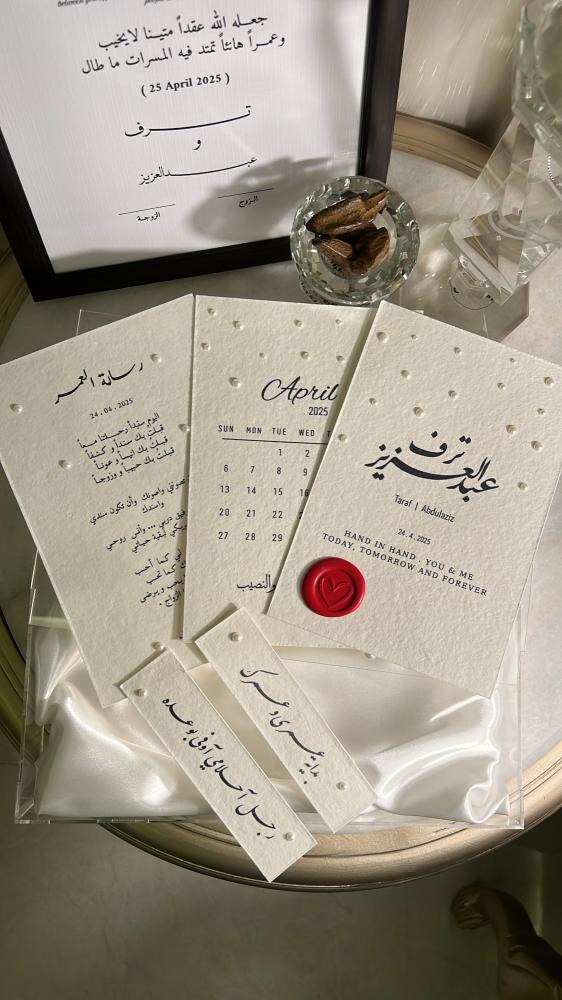 جعله الله عقداً متينا لايخيب
وعمراً هانئاً تمتد فيه المسرات ما طال
( 25 April 2025 )
تـرف
و
عبدالعزيز
الزوج
الزوجة
رسالة العمر
24.04.2025
اليوم سنبدأ رحلتنا معاً
قبلتُ بك سنداً و كتفاً
قبلتُ بك أنيساً و عوناً
قبلتُ بك حبيباً و زوجاً
واصونك وأن تكون سندي
واسندك
دربي ... وأنس روحي
لبقية حياتي
كما أحب
كما تحب
يحب ويرضى
الزواج .
April
2025
SUN MON TUE WED
1 2
6 7 8 9
13 14 15 16
20 21 22
27 28 29
والنصيب
ترف
عبدالعزيز
Taraf | Abdulaziz
24.4.2025
HAND IN HAND · YOU & ME
TODAY, TOMORROW AND FOREVER
بداية عمري و عمرك
رجل أحلامي أوفى بوعده